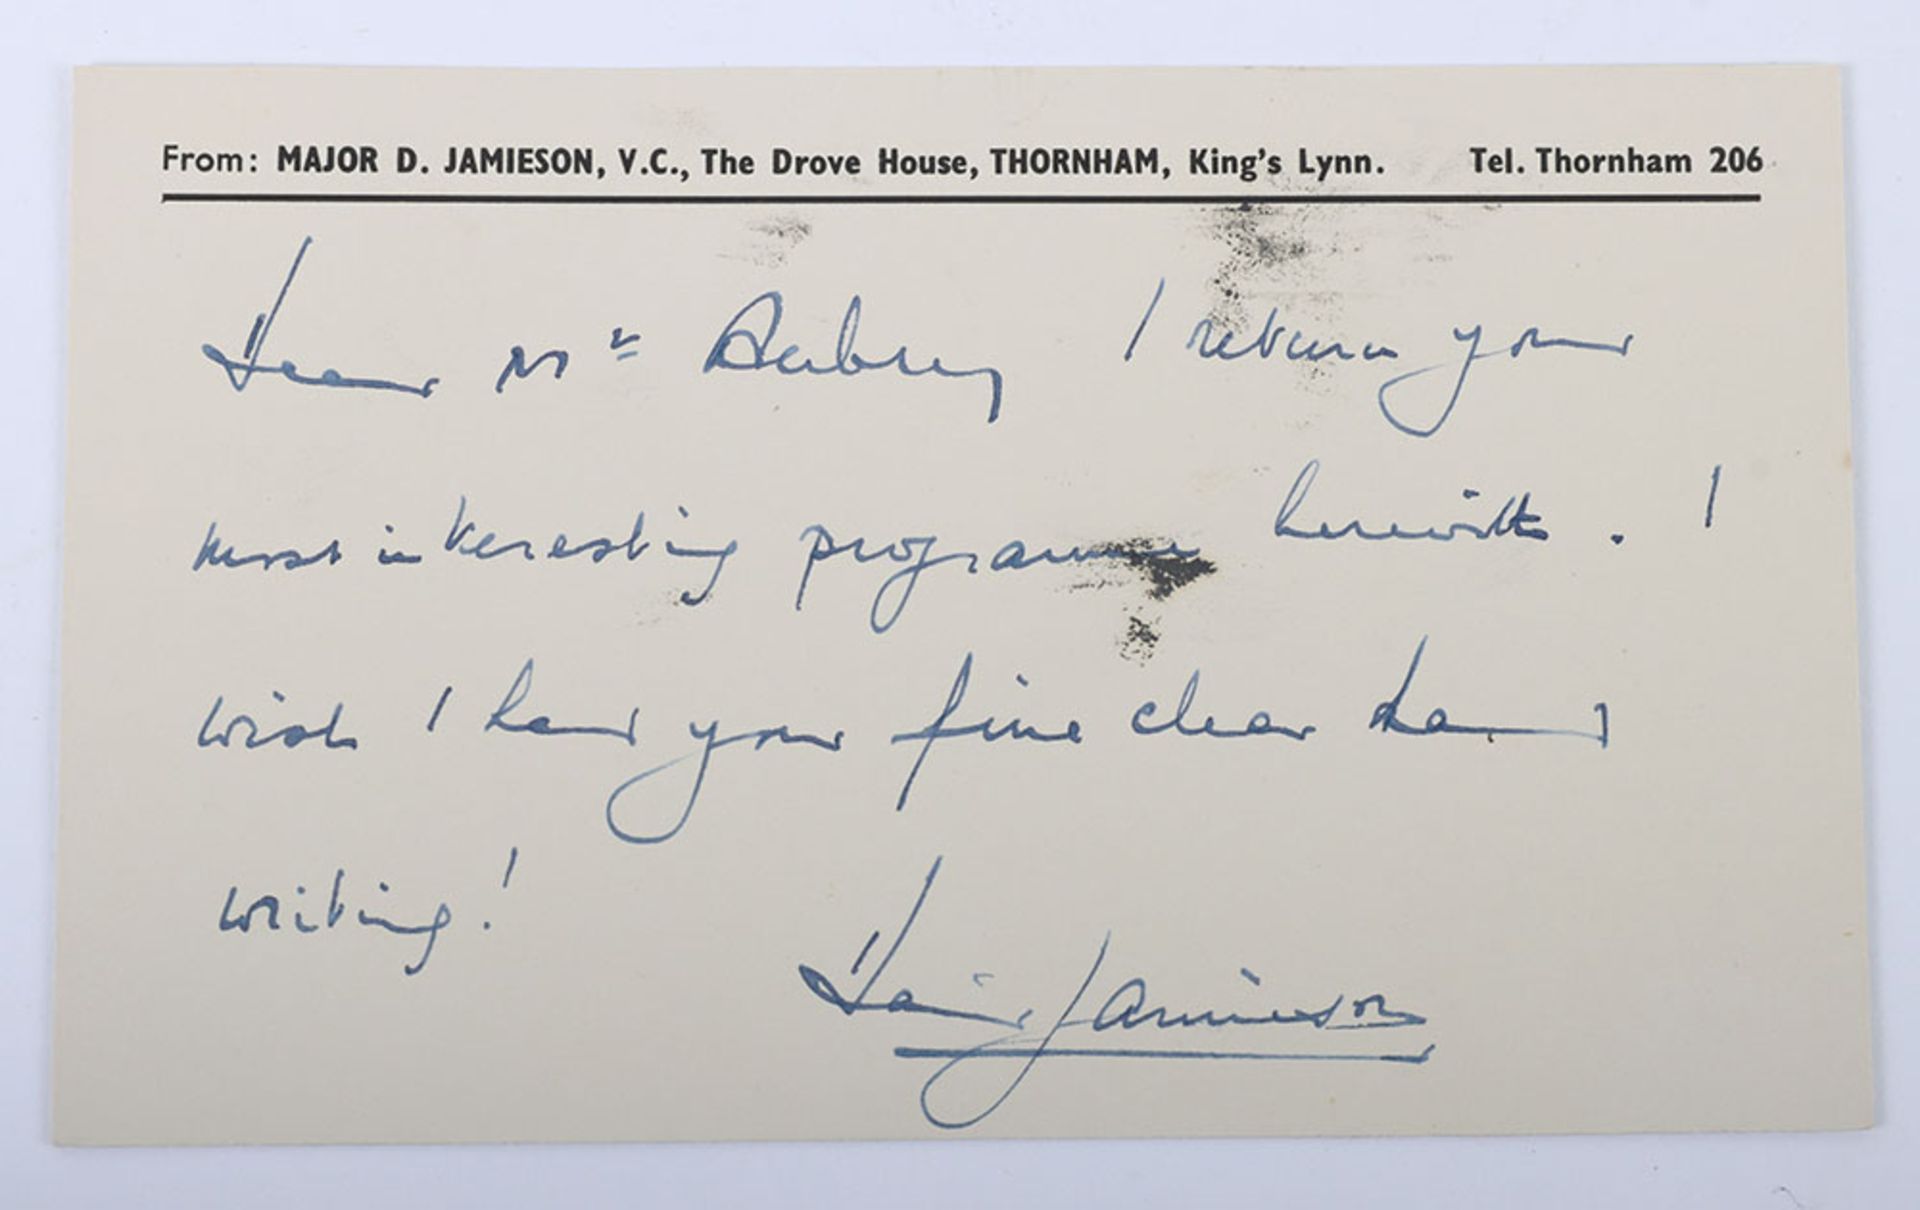 From: MAJOR D. JAMIESON, V.C., The Drove House, THORNHAM, King's Lynn. Tel. Thornham 206
Dear Mr Aubrey I return your
most interesting programme herewith. I
wish I had your fine clear hand
writing!
David Jamieson